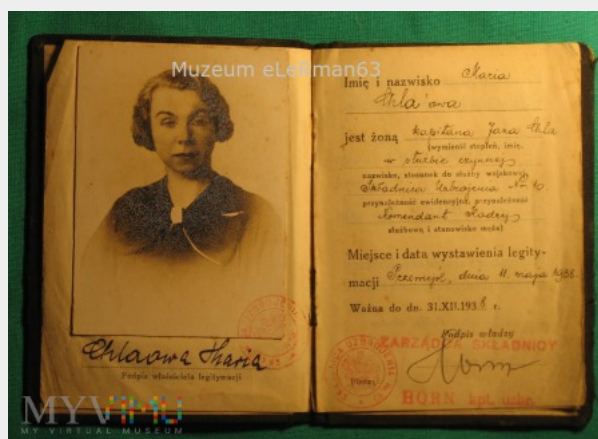 Muzeum eLeKman63
Chlaowa Maria
Podpis właściciela legitymacji
MYVIMU
MY VIRTUAL MUSEUM
Imię i nazwisko Maria
Chla'owa
jest żoną kapitana Jana Chla
(wymienić stopień, imię,
w służbie czynnej
nazwisko, stosunek do służby wojskowej,
Składnica Uzbrojenia Nr.
przynależność ewidencyjna, przynależność
Komendant
służbową i stanowisko męża)
Miejsce i data wystawienia legity-
macji Przemyśl, dnia 11. maja 1938
Ważna do dn. 31.XII.1938 r.
Podpis władzy
ZARZĄDCA SKŁADNICY
Born
BORN kpt. uzbr.